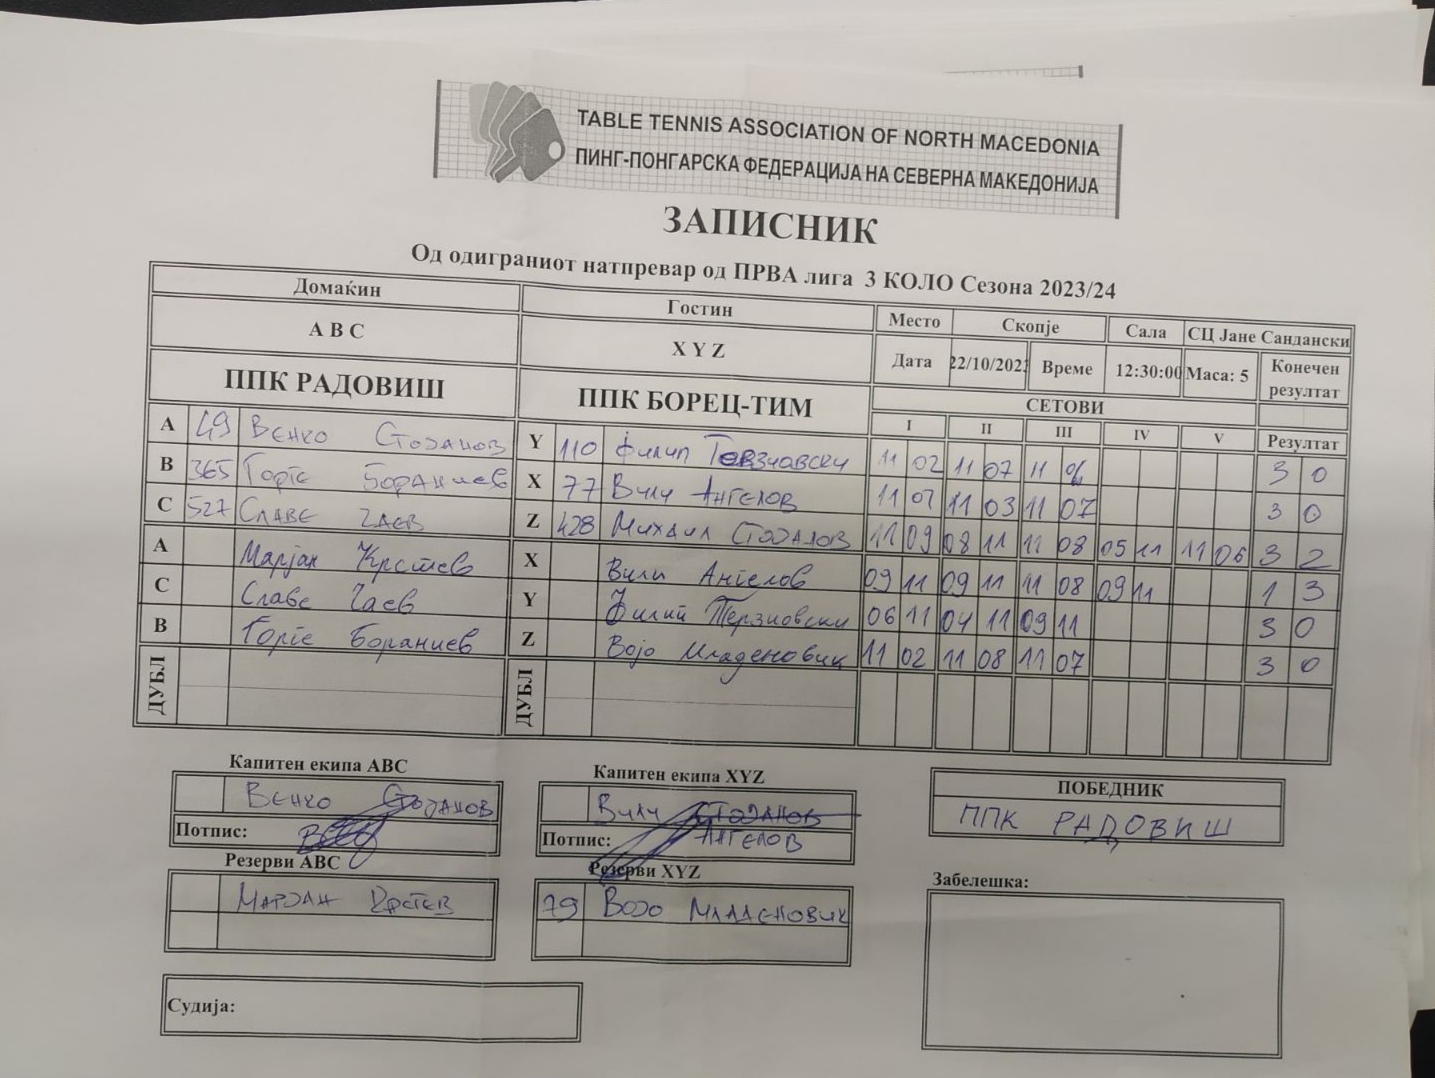 TABLE TENNIS ASSOCIATION OF NORTH MACEDONIA
ПИНГ-ПОНГАРСКА ФЕДЕРАЦИЈА НА СЕВЕРНА МАКЕДОНИЈА
ЗАПИСНИК
Од одиграниот натпревар од ПРВА лига 3 КОЛО Сезона 2023/24
Домаќин Гостин Место Скопје Сала СЦ Јане Сандански
А В С X Y Z Дата 22/10/202 Време 12:30:00 Маса: 5 Конечен резултат
ППК РАДОВИШ ППК БОРЕЦ-ТИМ СЕТОВИ
I II III IV V Резултат
A 49 Венко Стојанов Y 110 Филип Терзиовски 11 02 11 07 11 06 3 0
B 365 Ѓорѓе Бораниев X 77 Вили Ангелов 11 07 11 03 11 07 3 0
C 527 Славе Чаев Z 428 Михаил Стојанов 11 09 08 11 11 08 05 11 11 06 3 2
A Марјан Крстев X Вили Ангелов 09 11 09 11 11 08 09 11 1 3
C Славе Чаев Y Филип Терзиовски 06 11 04 11 09 11 3 0
B Ѓорѓе Бораниев Z Војо Младеновиќ 11 02 11 08 11 07 3 0
ДУБЛ ДУБЛ
Капитен екипа ABC Капитен екипа XYZ ПОБЕДНИК
Венко Стојанов Вили Стојанов ППК РАДОВИШ
Потпис: Потпис: Ангелов
Резерви ABC Резерви XYZ Забелешка:
Марјан Крстев 79 Војо Младеновиќ
Судија: